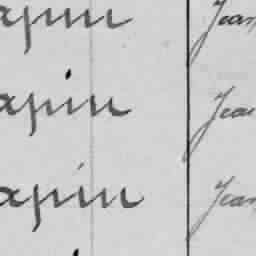 apin Jean
apin Jean
apin Jean